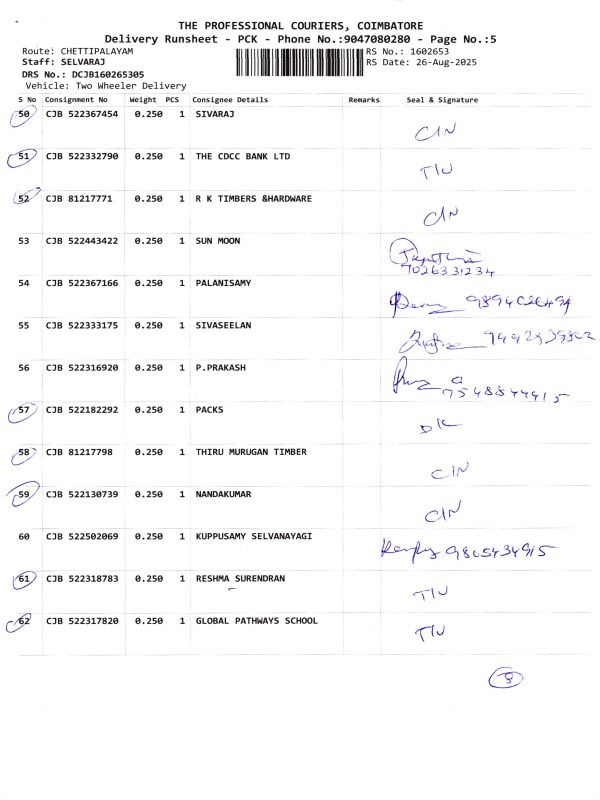 THE PROFESSIONAL COURIERS, COIMBATORE
Delivery Runsheet - PCK - Phone No.:9047080280 - Page No.:5
Route: CHETTIPALAYAM RS No.: 1602653
Staff: SELVARAJ RS Date: 26-Aug-2025
DRS No.: DCJB160265305
Vehicle: Two Wheeler Delivery
S No Consignment No Weight PCS Consignee Details Remarks Seal & Signature
50 CJB 522367454 0.250 1 SIVARAJ
CIN
51 CJB 522332790 0.250 1 THE CDCC BANK LTD
TIU
52 CJB 81217771 0.250 1 R K TIMBERS &HARDWARE
CIN
53 CJB 522443422 0.250 1 SUN MOON
7026331234
54 CJB 522367166 0.250 1 PALANISAMY
55 CJB 522333175 0.250 1 SIVASEELAN
56 CJB 522316920 0.250 1 P.PRAKASH
7548844415
57 CJB 522182292 0.250 1 PACKS
DK
58 CJB 81217798 0.250 1 THIRU MURUGAN TIMBER
CIN
59 CJB 522130739 0.250 1 NANDAKUMAR
CIN
60 CJB 522502069 0.250 1 KUPPUSAMY SELVANAYAGI
9865434915
61 CJB 522318783 0.250 1 RESHMA SURENDRAN
TIU
62 CJB 522317820 0.250 1 GLOBAL PATHWAYS SCHOOL
TIU
8